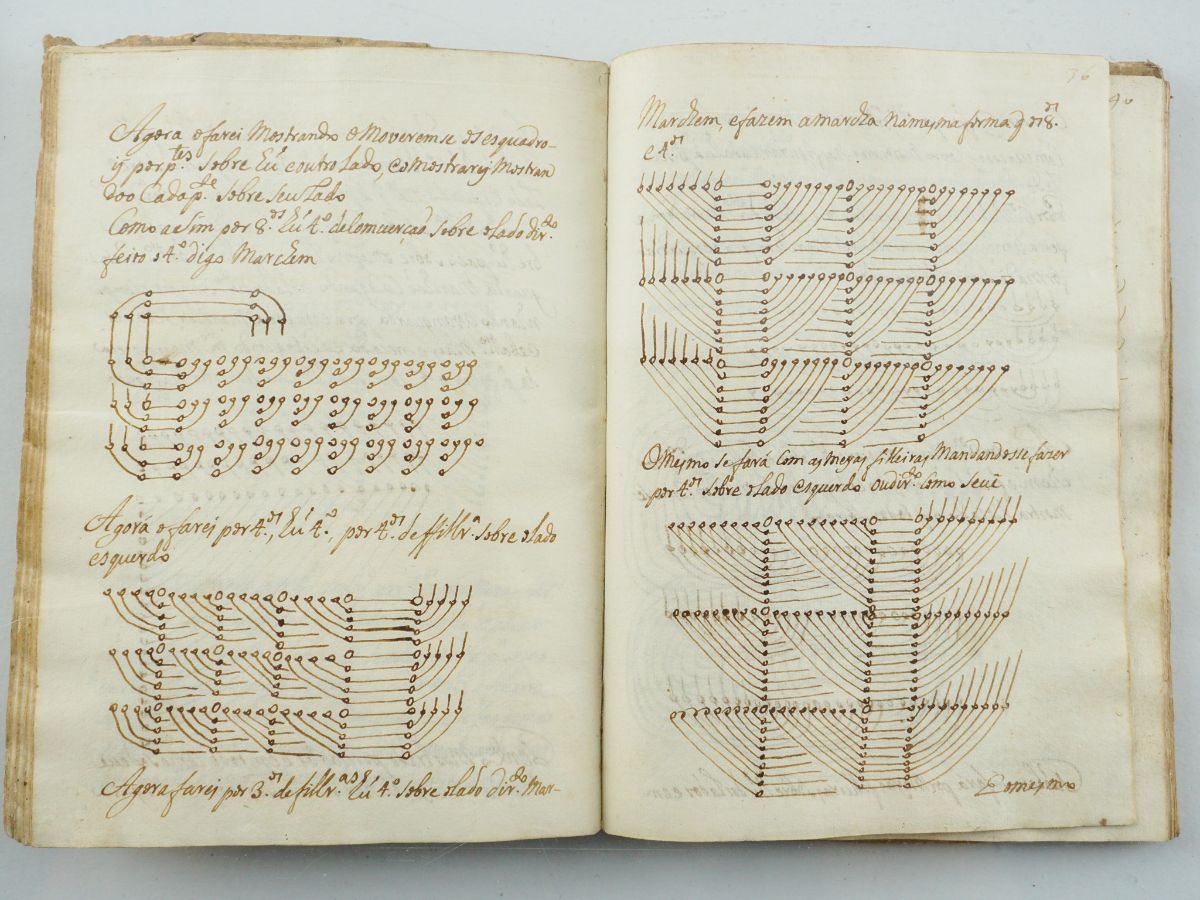 Agora o farei Mostrando o Moveremse os esquadro-
is por p.tes sobre hú e outro Lado, e o Mostrarej Mostran
doo Cada p.te sobre seu Lado
Como aesim por 8.os hú 4.o de Comverção sobre o lado dir.to
feito o 4.o digo Marchem
Agora o farei por 4.os, hú 4.o, por 4.os de fillr.a sobre o lado
esquerdo
Agora farei por 3.os de fillr.as hú 4.o sobre o lado dir.to Mar-
36
Marchem, e fazem a marcha na mesma forma q os 8.os
e 4.os
O Mesmo se fará Com as meyas filleiras Mandandosse fazer
por 4.os sobre o lado esquerdo ou dir.to Como se vê
E o mesmo